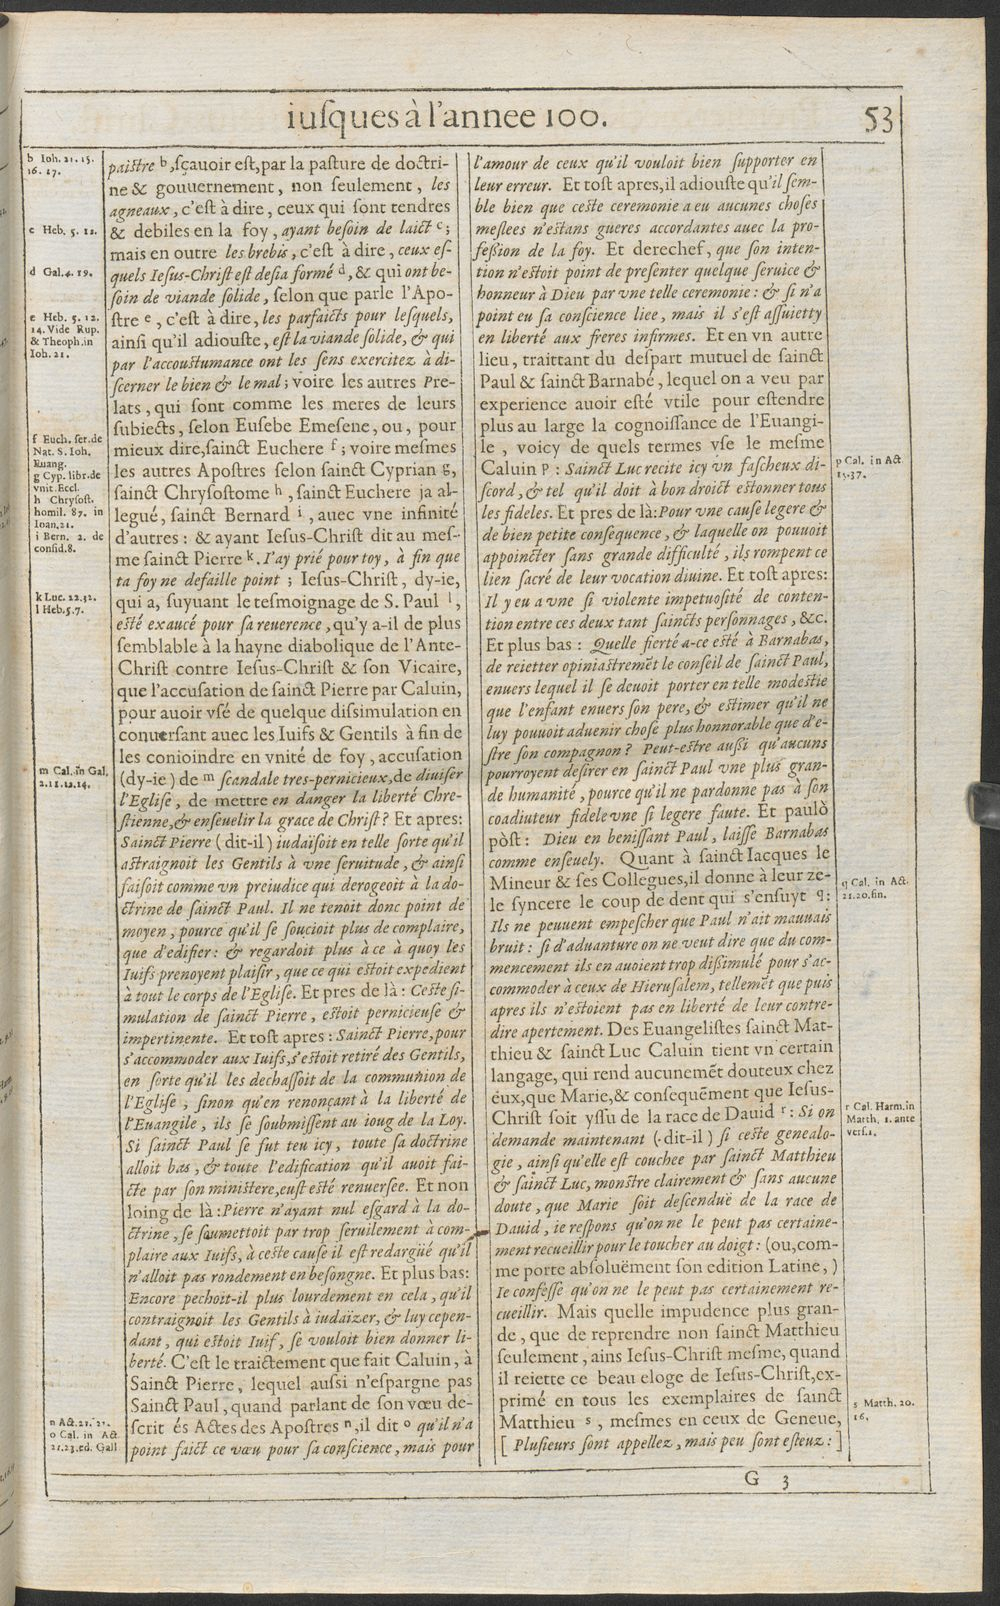 iuſques à l'annee 100.
53
b Ioh. 21. 15.
16. 17.
c Heb. 5. 12.
d Gal. 4. 19.
e Heb. 5. 12.
14. Vide Rup.
& Theoph. in
Ioh. 21.
f Euch. ſer. de
Nat. S. Ioh.
Euang.
g Cyp. libr. de
vnit. Eccl.
h Chryſoſt.
homil. 87. in
Ioan. 21.
i Bern. 2. de
conſid. 8.
k Luc. 22. 32.
l Heb. 5. 7.
m Cal. in Gal.
2. 11. 12. 14.
n Act. 21. 21.
o Cal. in Act
21. 23. ed. Gall
paiſtre b, ſçauoir eſt, par la paſture de doctri-
ne & gouuernement, non ſeulement, les
agneaux, c'eſt à dire, ceux qui ſont tendres
& debiles en la foy, ayant beſoin de laict c;
mais en outre les brebis, c'eſt à dire, ceux eſ-
quels Ieſus-Chriſt eſt deſia formé d, & qui ont be-
ſoin de viande ſolide, ſelon que parle l'Apo-
ſtre e, c'eſt à dire, les parfaicts pour leſquels,
ainſi qu'il adiouſte, eſt la viande ſolide, & qui
par l'accouſtumance ont les ſens exercitez à di-
ſcerner le bien & le mal; voire les autres Pre-
lats, qui ſont comme les meres de leurs
ſubiects, ſelon Euſebe Emeſene, ou, pour
mieux dire, ſainct Euchere f; voire meſmes
les autres Apoſtres ſelon ſainct Cyprian g,
ſainct Chryſoſtome h, ſainct Euchere ja al-
legué, ſainct Bernard i, auec vne infinité
d'autres: & ayant Ieſus-Chriſt dit au meſ-
me ſainct Pierre k. I'ay prié pour toy, à fin que
ta foy ne defaille point; Ieſus-Chriſt, dy-ie,
qui a, ſuyuant le teſmoignage de S. Paul l,
eſté exaucé pour ſa reuerence, qu'y a-il de plus
ſemblable à la hayne diabolique de l'Ante-
Chriſt contre Ieſus-Chriſt & ſon Vicaire,
que l'accuſation de ſainct Pierre par Caluin,
pour auoir vſé de quelque diſsimulation en
conuerſant auec les Iuifs & Gentils à fin de
les conioindre en vnité de foy, accuſation
(dy-ie) de m ſcandale tres-pernicieux, de diuiſer
l'Egliſe, de mettre en danger la liberté Chre-
ſtienne, & enſeuelir la grace de Chriſt? Et apres:
Sainct Pierre (dit-il) iudaïſoit en telle ſorte qu'il
aſtraignoit les Gentils à vne ſeruitude, & ainſi
faiſoit comme vn preiudice qui derogeoit à la do-
ctrine de ſainct Paul. Il ne tenoit donc point de
moyen, pource qu'il ſe ſoucioit plus de complaire,
que d'edifier: & regardoit plus à ce à quoy les
Iuifs prenoyent plaiſir, que ce qui eſtoit expedient
à tout le corps de l'Egliſe. Et pres de là: Ceſte ſi-
mulation de ſainct Pierre, eſtoit pernicieuſe &
impertinente. Et toſt apres: Sainct Pierre, pour
s'accommoder aux Iuifs, s'eſtoit retiré des Gentils,
en ſorte qu'il les dechaſſoit de la communion de
l'Egliſe, ſinon qu'en renonçant à la liberté de
l'Euangile, ils ſe ſoubmiſſent au ioug de la Loy.
Si ſainct Paul ſe fut teu icy, toute ſa doctrine
alloit bas, & toute l'edification qu'il auoit fai-
cte par ſon miniſtere, euſt eſté renuerſee. Et non
loing de là: Pierre n'ayant nul eſgard à la do-
ctrine, ſe ſoumettoit par trop ſeruilement à com-
plaire aux Iuifs, à ceſte cauſe il eſt redargüé qu'il
n'alloit pas rondement en beſongne. Et plus bas:
Encore pechoit-il plus lourdement en cela, qu'il
contraignoit les Gentils à iudaïzer, & luy cepen-
dant, qui eſtoit Iuif, ſe vouloit bien donner li-
berté. C'eſt le traictement que fait Caluin, à
Sainct Pierre, lequel auſsi n'eſpargne pas
Sainct Paul, quand parlant de ſon vœu de-
ſcrit és Actes des Apoſtres n, il dit o qu'il n'a
point faict ce vœu pour ſa conſcience, mais pour
l'amour de ceux qu'il vouloit bien ſupporter en
leur erreur. Et toſt apres, il adiouſte qu'il ſem-
ble bien que ceſte ceremonie a eu aucunes choſes
meſlees n'eſtans gueres accordantes auec la pro-
feßion de la foy. Et derechef, que ſon inten-
tion n'eſtoit point de preſenter quelque ſeruice &
honneur à Dieu par vne telle ceremonie: & ſi n'a
point eu ſa conſcience liee, mais il s'eſt aſſuietty
en liberté aux freres infirmes. Et en vn autre
lieu, traittant du deſpart mutuel de ſainct
Paul & ſainct Barnabé, lequel on a veu par
experience auoir eſté vtile pour eſtendre
plus au large la cognoiſſance de l'Euangi-
le, voicy de quels termes vſe le meſme
Caluin p: Sainct Luc recite icy vn faſcheux di-
ſcord, & tel qu'il doit à bon droict eſtonner tous
les fideles. Et pres de là: Pour vne cauſe legere &
de bien petite conſequence, & laquelle on pouuoit
appoincter ſans grande difficulté, ils rompent ce
lien ſacré de leur vocation diuine. Et toſt apres:
Il y eu a vne ſi violente impetuoſité de conten-
tion entre ces deux tant ſaincts perſonnages, &c.
Et plus bas: Quelle fierté a-ce eſté à Barnabas,
de reietter opiniaſtremēt le conſeil de ſainct Paul,
enuers lequel il ſe deuoit porter en telle modeſtie
que l'enfant enuers ſon pere, & eſtimer qu'il ne
luy pouuoit aduenir choſe plus honnorable que d'e-
ſtre ſon compagnon? Peut-eſtre außi qu'aucuns
pourroyent deſirer en ſainct Paul vne plus gran-
de humanité, pource qu'il ne pardonne pas à ſon
coadiuteur fidele vne ſi legere faute. Et paulò
pòſt: Dieu en beniſſant Paul, laiſſe Barnabas
comme enſeuely. Quant à ſainct Iacques le
Mineur & ſes Collegues, il donne à leur ze-
le ſyncere le coup de dent qui s'enſuyt q:
Ils ne peuuent empeſcher que Paul n'ait mauuais
bruit: ſi d'aduanture on ne veut dire que du com-
mencement ils en auoient trop dißimulé pour s'ac-
commoder à ceux de Hieruſalem, tellemēt que puis
apres ils n'eſtoient pas en liberté de leur contre-
dire apertement. Des Euangeliſtes ſainct Mat-
thieu & ſainct Luc Caluin tient vn certain
langage, qui rend aucunemēt douteux chez
eux, que Marie, & conſequēment que Ieſus-
Chriſt ſoit yſſu de la race de Dauid r: Si on
demande maintenant (dit-il) ſi ceſte genealo-
gie, ainſi qu'elle eſt couchee par ſainct Matthieu
& ſainct Luc, monſtre clairement & ſans aucune
doute, que Marie ſoit deſcenduë de la race de
Dauid, ie reſpons qu'on ne le peut pas certaine-
ment recueillir pour le toucher au doigt: (ou, com-
me porte abſoluëment ſon edition Latine,)
Ie confeſſe qu'on ne le peut pas certainement re-
cueillir. Mais quelle impudence plus gran-
de, que de reprendre non ſainct Matthieu
ſeulement, ains Ieſus-Chriſt meſme, quand
il reiette ce beau eloge de Ieſus-Chriſt, ex-
primé en tous les exemplaires de ſainct
Matthieu s, meſmes en ceux de Geneue,
[ Pluſieurs ſont appellez, mais peu ſont eſleuz: ]
p Cal. in Act
15. 37.
q Cal. in Act.
21. 20. fin.
r Cal. Harm. in
Matth. 1. ante
verſ. 1.
s Matth. 20.
16.
G 3